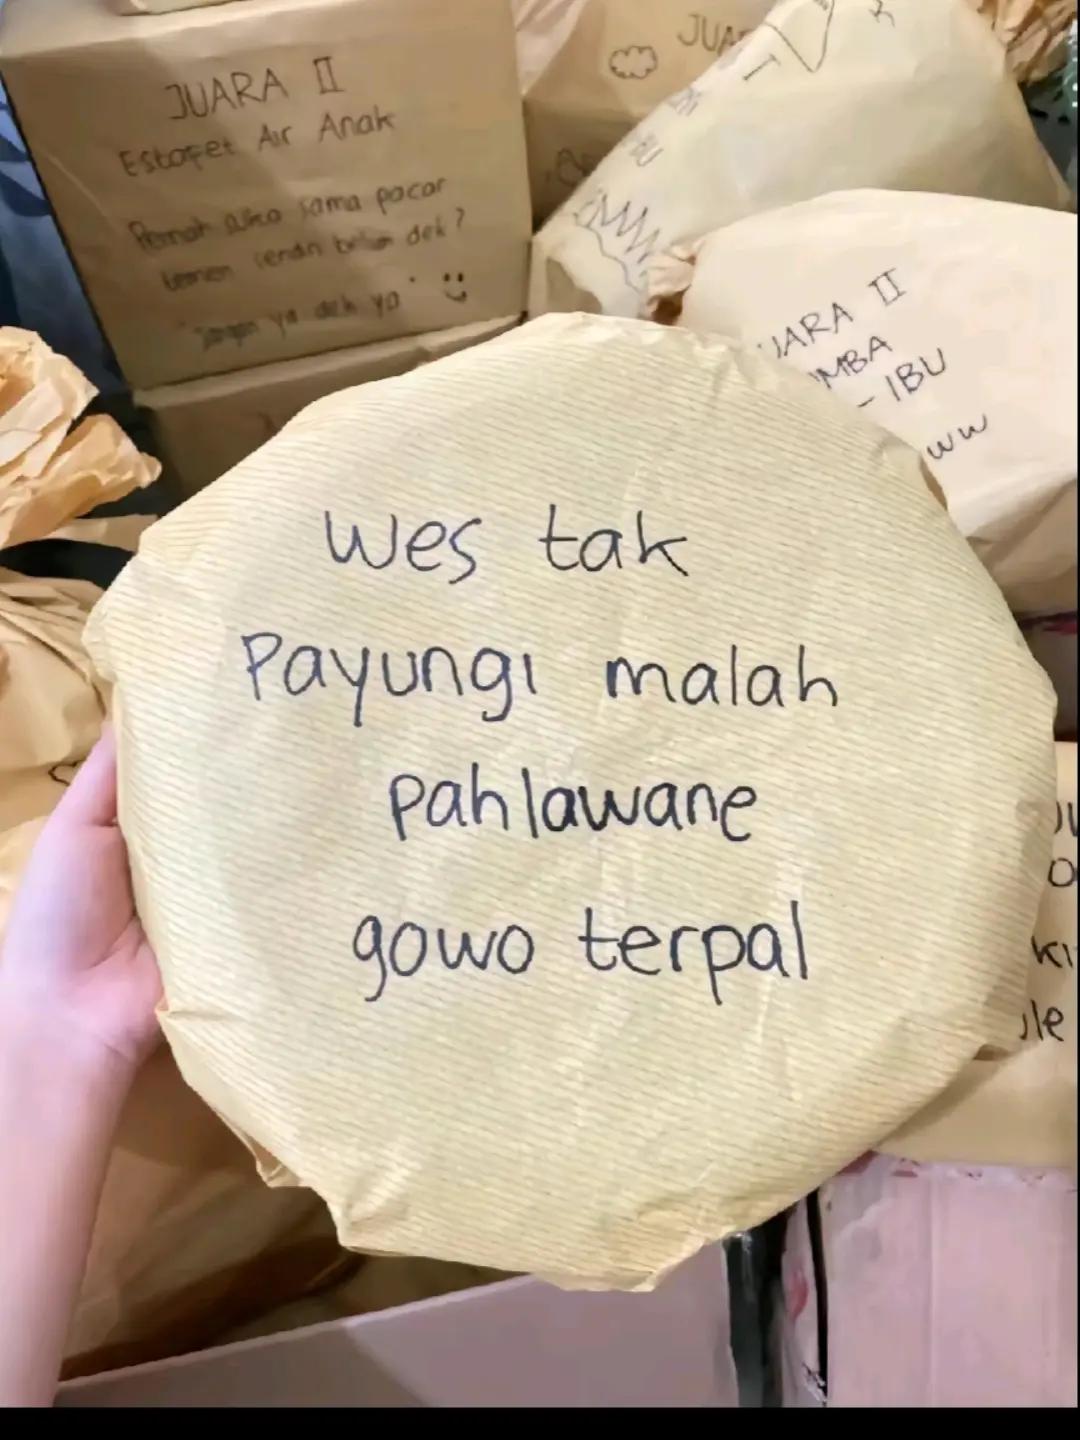 JUARA II
Estafet Air Anak
Pernah suka sama pacar
temen sendiri belum dek?
"Jangan ya dek ya"
JUA
BU
JUARA II
OMBA
- IBU
WW
Wes tak
Payungi malah
pahlawane
gowo terpal